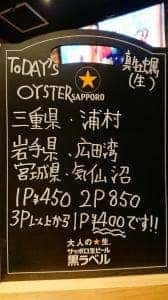 TODAY'S
OYSTER
真牡蠣
(生)
SAPPORO
三重県・浦村
岩手県・広田湾
宮城県・気仙沼
1P¥450 2P850
3P以上から1P¥400です!!
大人の★生
サッポロ生ビール
黒ラベル